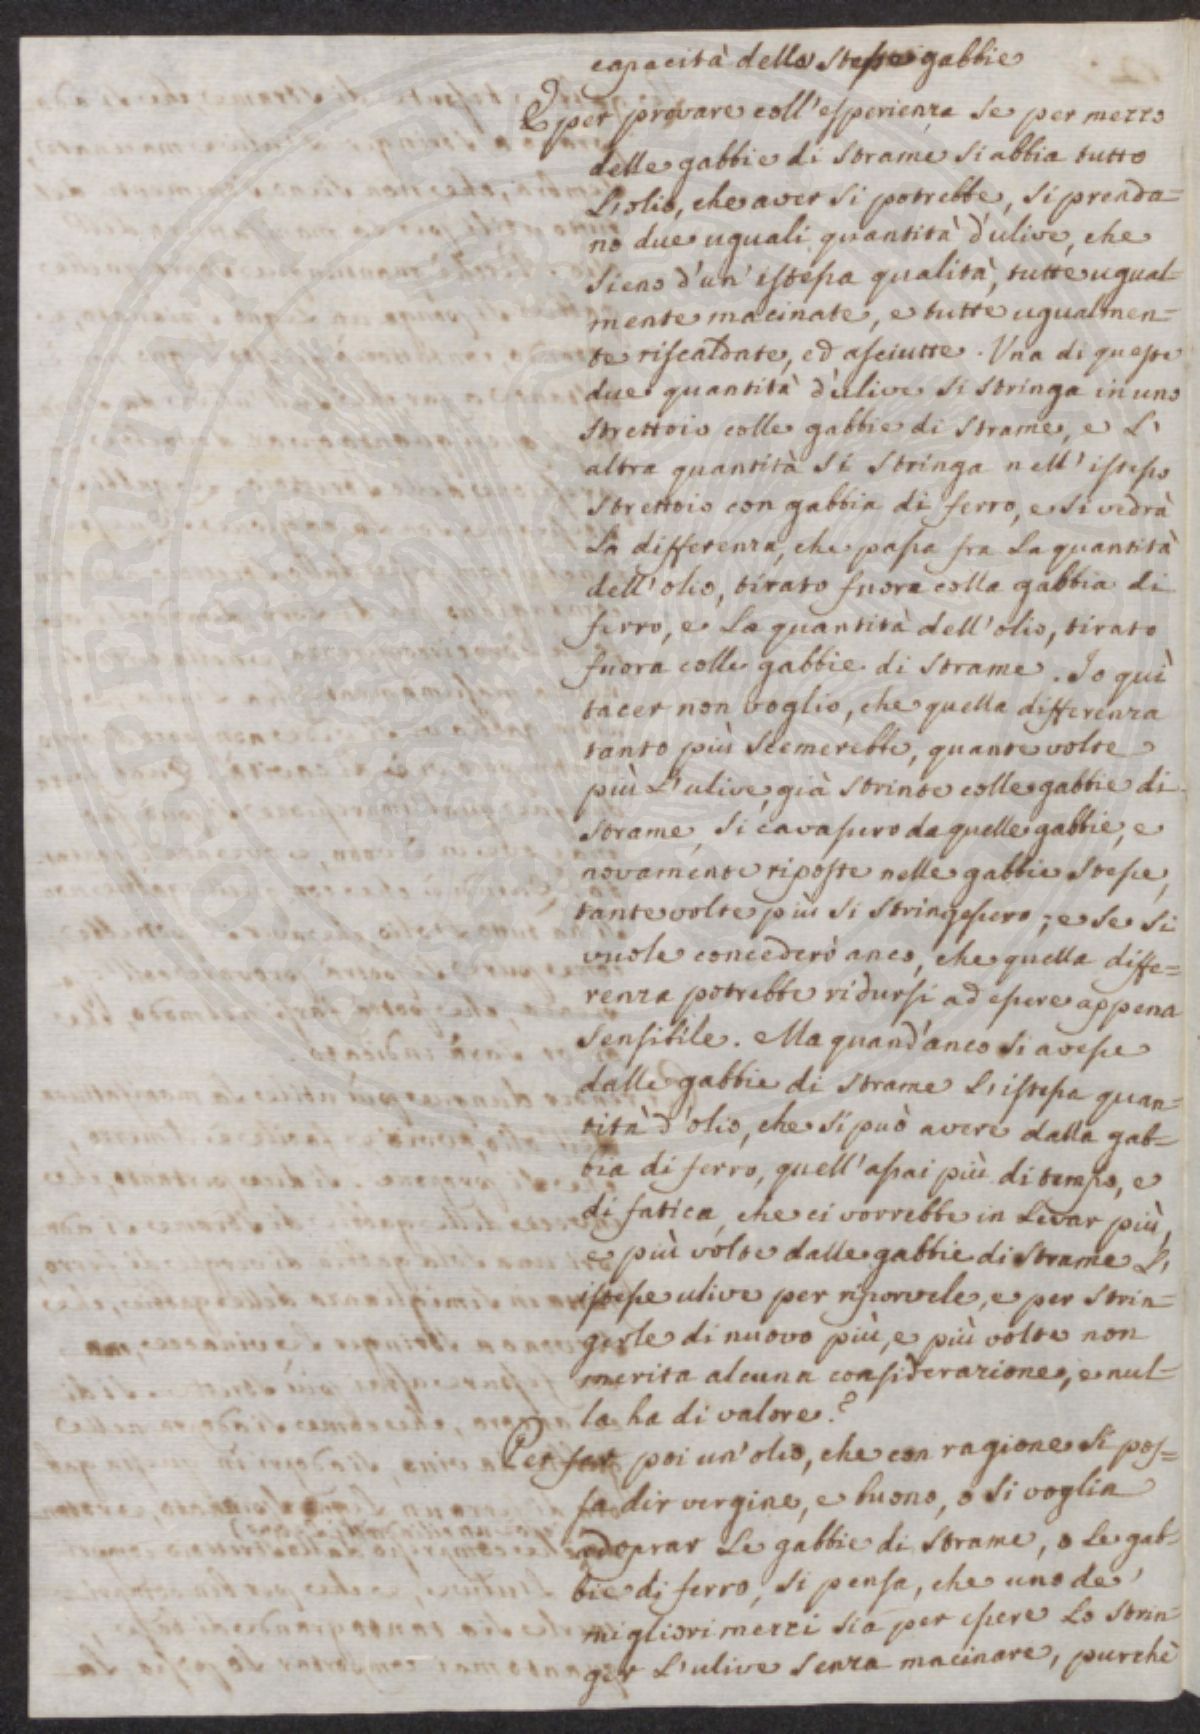 capacità delle stesse gabbie
E per provare coll'esperienza se per mezzo
delle gabbie di strame si abbia tutto
L'olio, che aver si potrebbe, si prenda=
no due uguali quantità d'ulive, che
sieno d'un'istessa qualità, tutte ugual=
mente macinate, e tutte ugualmen=
te riscaldate, ed asciutte. Una di queste
due quantità d'ulive si stringa in uno
strettoio colle gabbie di strame, e L'
altra quantità si stringa nell'istesso
strettoio con gabbia di ferro, e si vedrà
La differenza, che passa fra La quantità
dell'olio, tirato fuora colla gabbia di
ferro, e La quantità dell'olio, tirato
fuora colle gabbie di strame. Io quì
tacer non voglio, che quella differenza
tanto più scemerebbe, quante volte
più L'ulive, già strinte colle gabbie di
strame, si cavassero da quelle gabbie, e
novamente riposte nelle gabbie stesse,
tante volte più si stringessero; e se si
vuole concederò anco, che quella diffe=
renza potrebbe ridursi ad essere appena
sensibile. Ma quand'anco si avesse
dalle gabbie di strame L'istessa quan=
tità d'olio, che si può avere dalla gab=
bia di ferro, quell'assai più di tempo, e
di fatica, che ci vorrebbe in Levar più,
e più volte dalle gabbie di strame L'
istesse ulive per riporvele, e per strin=
gerle di nuovo più, e più volte non
merita alcuna considerazione, e nul=
la ha di valore?
Per far poi un'olio, che con ragione si pos=
sa dir vergine, e buono, o si voglia
adoprar Le gabbie di strame, o Le gab=
bie di ferro, si pensa, che uno de'
migliori mezzi sia per essere Lo strin=
ger L'ulive senza macinare, purchè